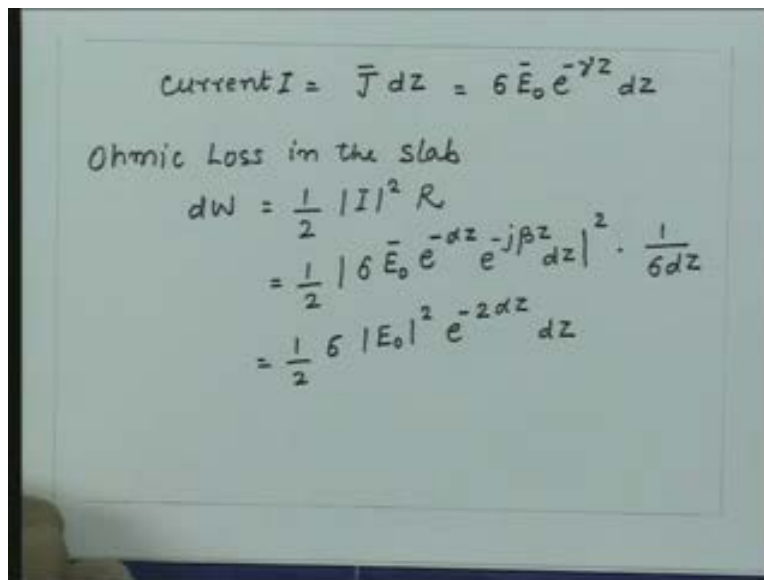 Current I = J̄ dz = σ Ē₀ e^{-γz} dz
Ohmic Loss in the slab
dW = 1/2 |I|² R
= 1/2 |σ Ē₀ e^{-αz} e^{-jβz} dz|² · 1/σdz
= 1/2 σ |E₀|² e^{-2αz} dz